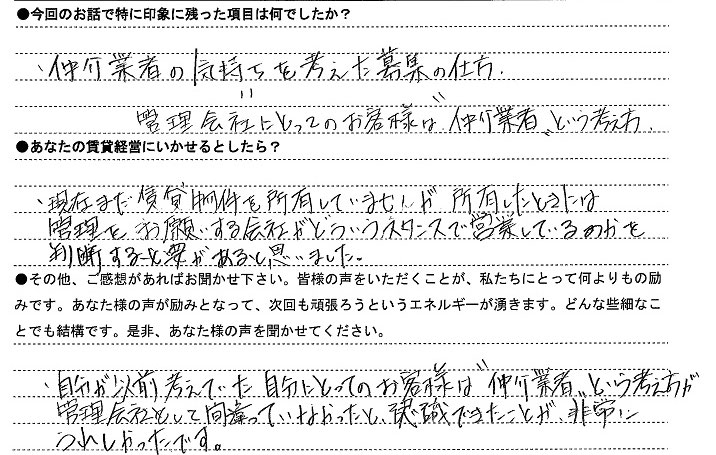 ●今回のお話で特に印象に残った項目は何でしたか？
、仲介業者の気持ちを考えた募集の仕方.
管理会社にとってのお客様は〝仲介業者〟という考え方.
●あなたの賃貸経営にいかせるとしたら？
、現在まだ賃貸物件を所有していませんが 所有したときには
管理をお願いする会社がどういうスタンスで営業しているのかを
判断する必要があると思いました。
●その他、ご感想があればお聞かせ下さい。皆様の声をいただくことが、私たちにとって何よりもの励
みです。あなた様の声が励みとなって、次回も頑張ろうというエネルギーが湧きます。どんな些細なこ
とでも結構です。是非、あなた様の声を聞かせてください。
、自分が以前考えていた 自分にとってのお客様は〝仲介業者〟という考え方が
管理会社として間違っていなかったと、認識できたことが、非常に
うれしかったです。